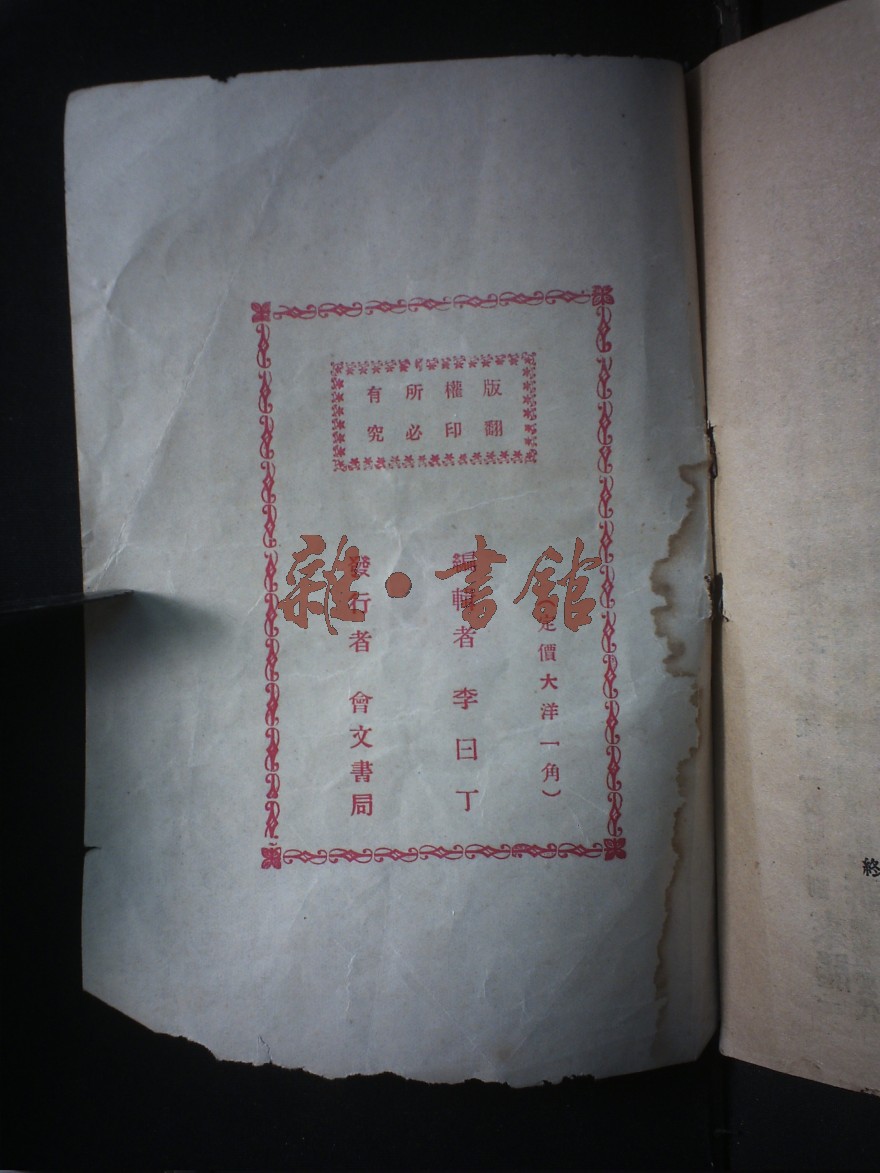 版權所有
翻印必究
(定價大洋一角)
編輯者 李曰丁
發行者 會文書局
雜·書館
終